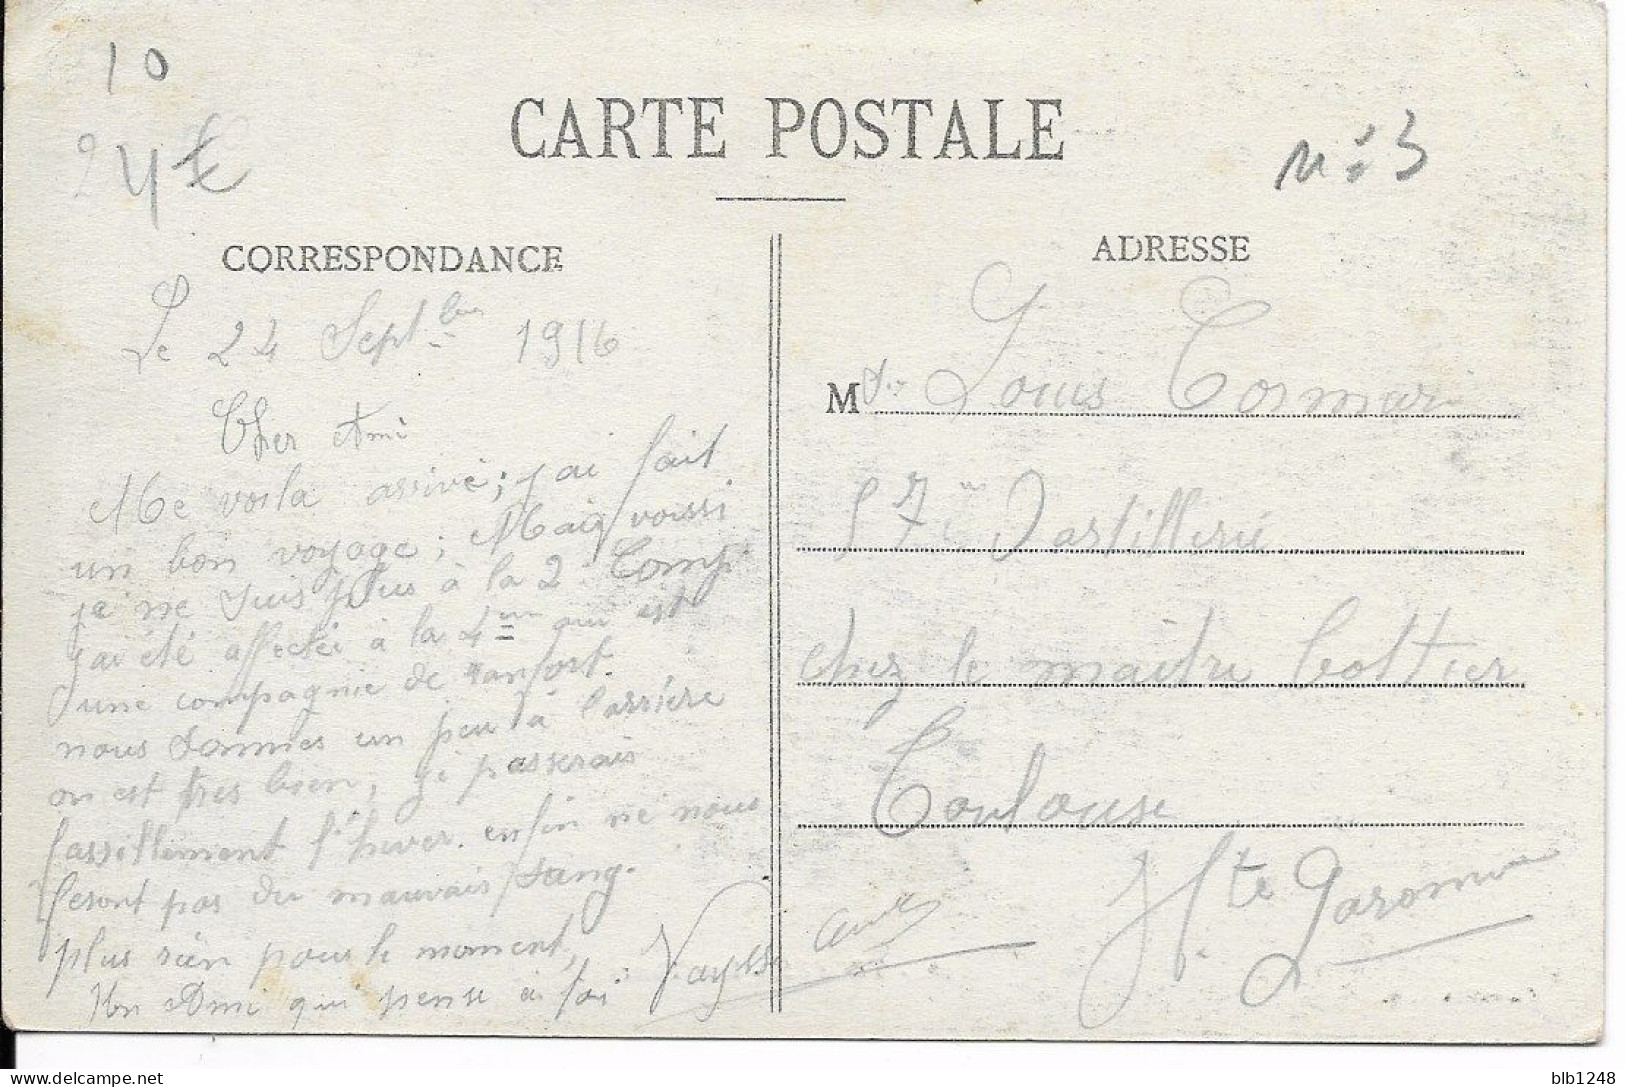 10
4 €
CARTE POSTALE
N: 3
CORRESPONDANCE
Le 24 Septbre 1916
Cher Ami
Me voila arrivé; j'ai fait
un bon voyage; Mais voissi
je ne suis plus à la 2. Comp.
j'ai été affecté à la 4em qui est
une compagnie de ranfort.
nous sommes un peu à l'arrière
on est tres bien, je passerais
fassillement l'hiver. enfin ne nous
fesont pas du mauvais sang.
plus rien pour le moment,
Un Ami qui pense à toi
ADRESSE
Mr Louis Cormar
57 Dartillerie
chez le maitre bottier
Toulouse
Hte Garonne
blb1248
delcampe.net